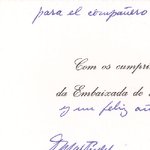 para el compañero
Com os cumpri
da Embaixada do
y un feliz añ